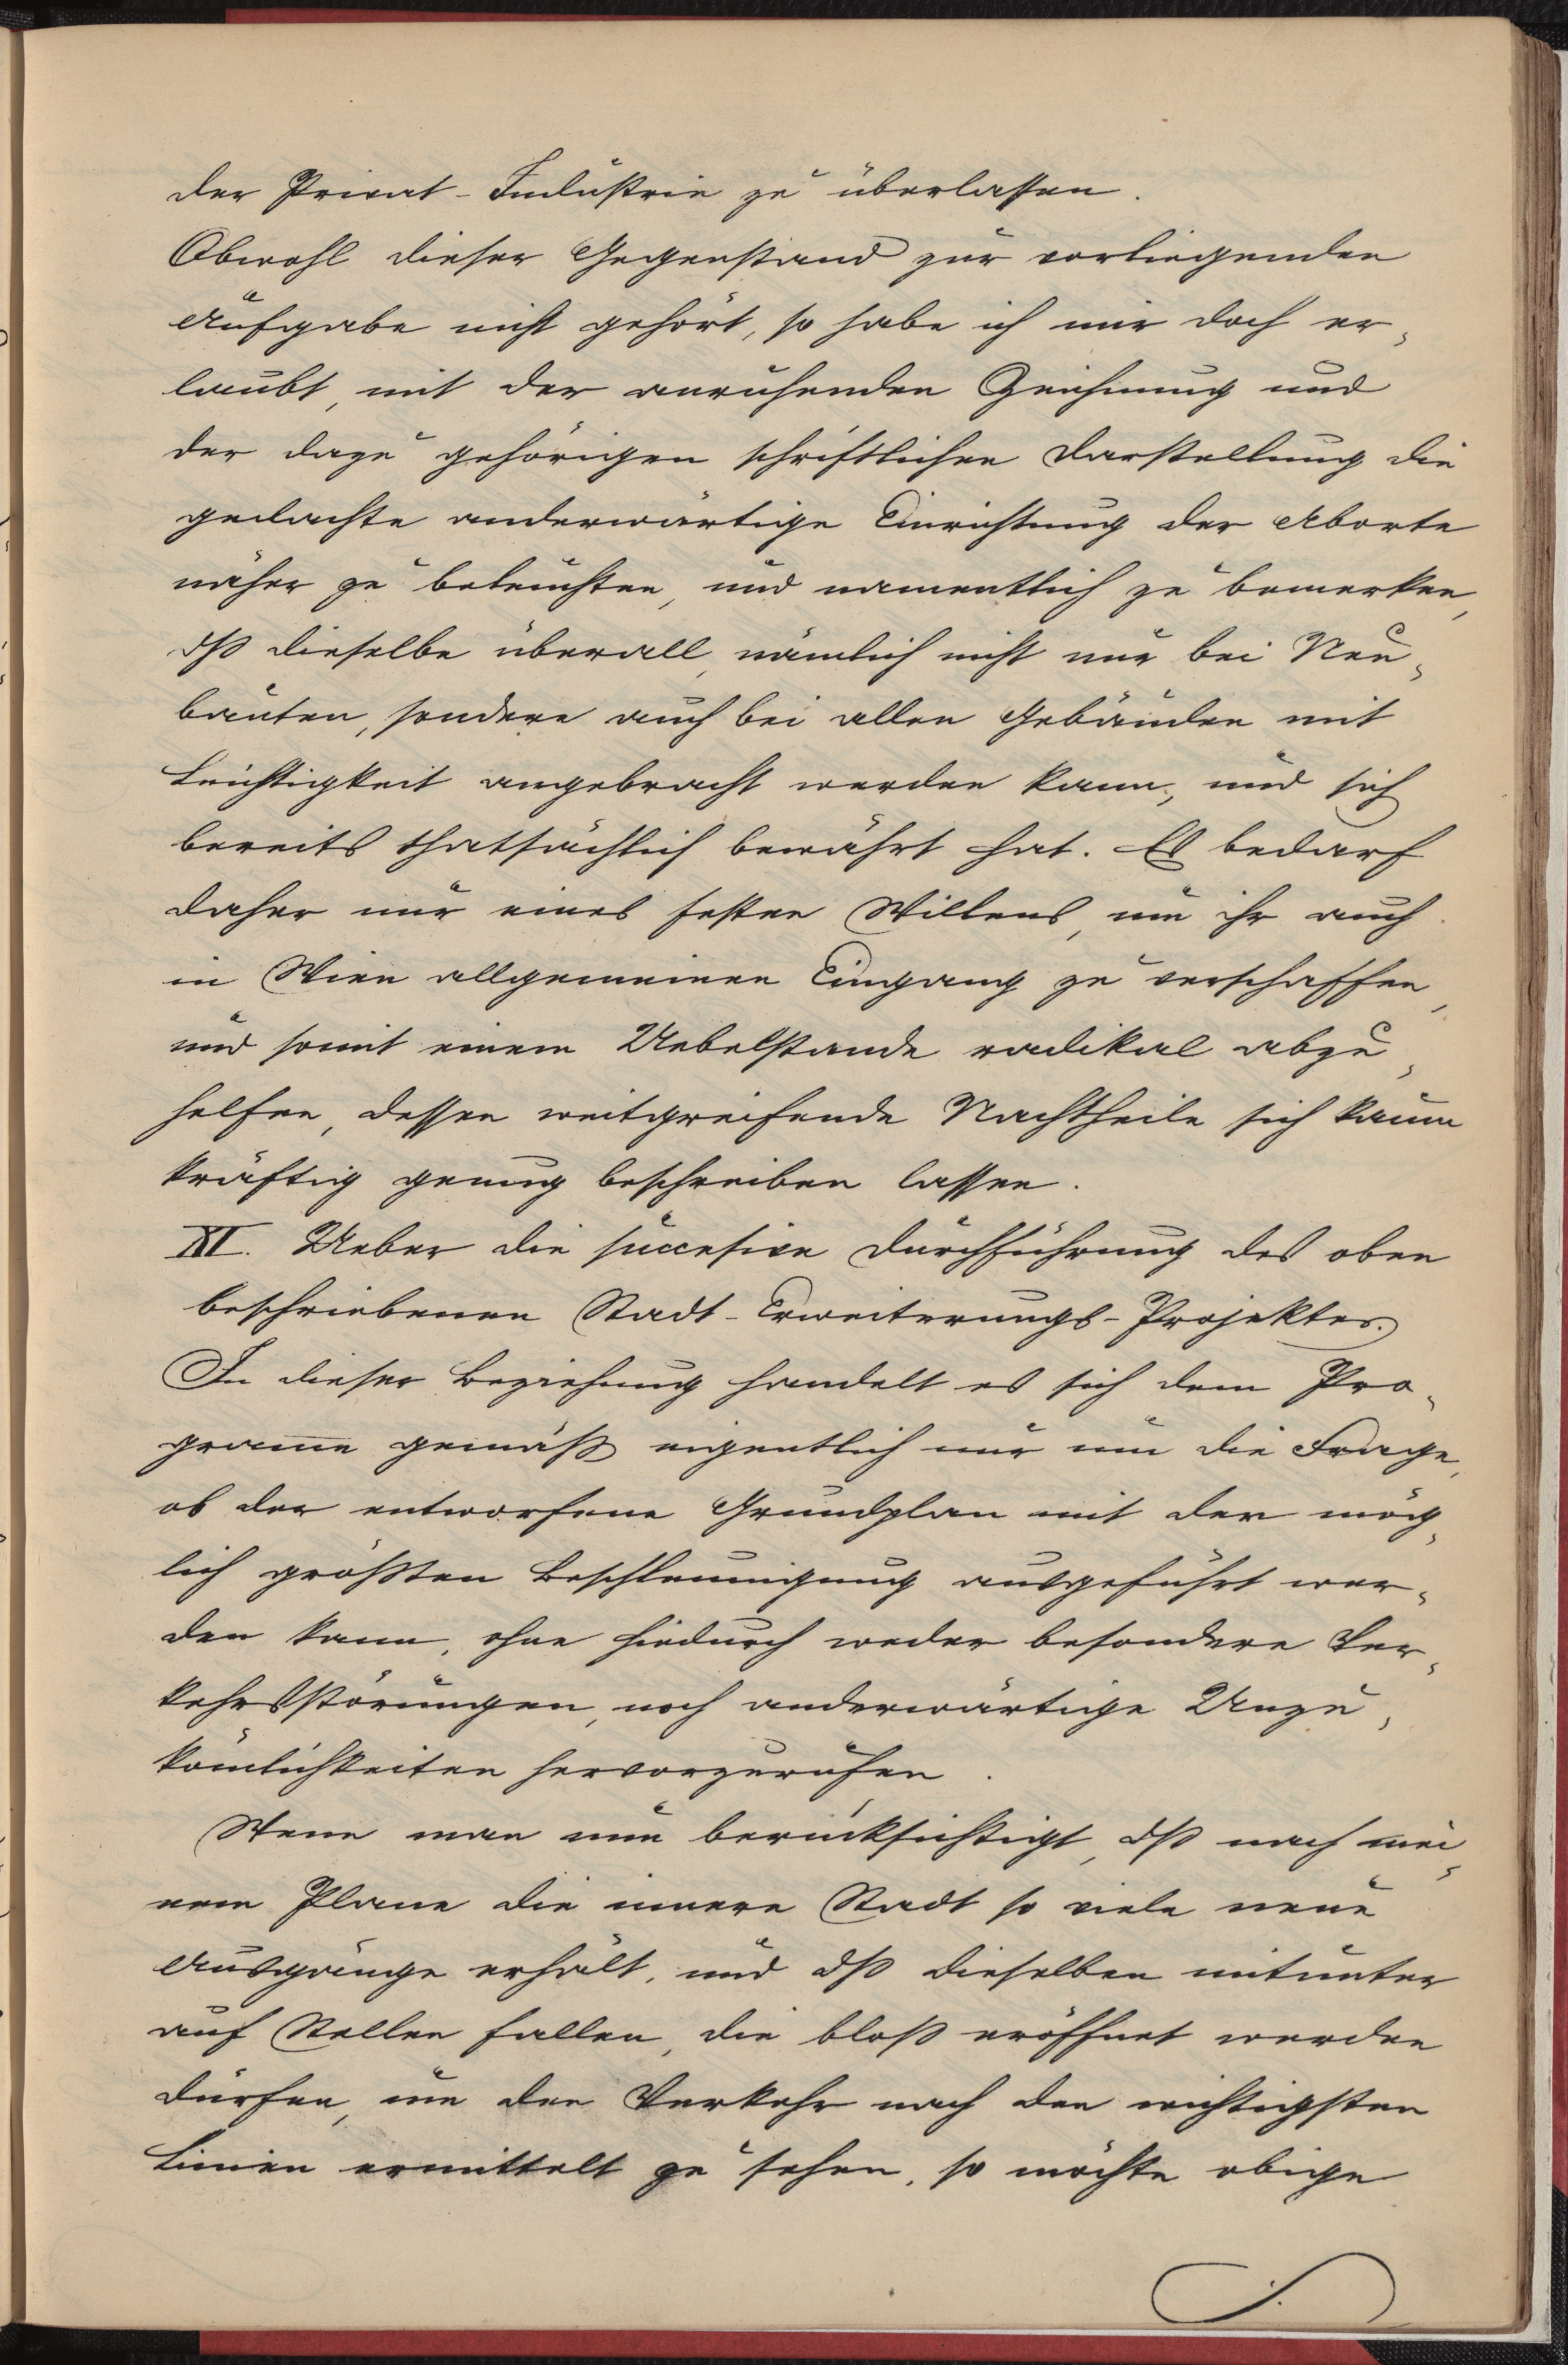 der Privat-Industrie zu überlassen.
Obwohl dieser Gegenstand zur vorliegenden
Aufgabe nicht gehört, so habe ich mir doch er-
laubt, mit der anruhenden Zeichnung und
der dazu gehörigen schriftlichen Darstellung die
gedachte anderwärtige Einrichtung der Aborte
näher zu beleuchten, und namentlich zu bemerken,
dß dieselbe überall, nämlich nicht nur bei Neu-
bauten, sondern auch bei allen Gebäuden mit
Leichtigkeit angebracht werden kann, und sich
bereits thatsächlich bewährt hat. Es bedarf
daher nur eines festen Willens, um ihr auch
in Wien allgemeinen Eingang zu verschaffen,
und somit einem Uebelstande radikal abzu-
helfen, dessen weitgreifende Nachtheile sich kaum
kräftig genug beschreiben lassen.
XI. Ueber die succesive Durchführung des oben
beschriebenen Stadt-Erweiterungs-Projektes.
In dieser Beziehung handelt es sich dem Pro-
grame gemäß eigentlich nur um die Frage,
ob der entworfene Grundplan mit der mög-
lich größten Beschleunigung ausgeführt wer-
den kann, ohne hiedurch weder besondere Ver-
kehrsstörungen, noch anderwärtige Unzu-
kömlichkeiten hervorzurufen.
Wenn man nun berücksichtigt, dß nach mei-
nem Plane die innere Stadt so viele neue
Ausgänge erhält, und dß dieselben mitunter
auf Stellen fallen, die bloß eröffnet werden
dürfen, um den Verkehr nach den wichtigsten
Linien ermittelt zu sehen, so möchte obige